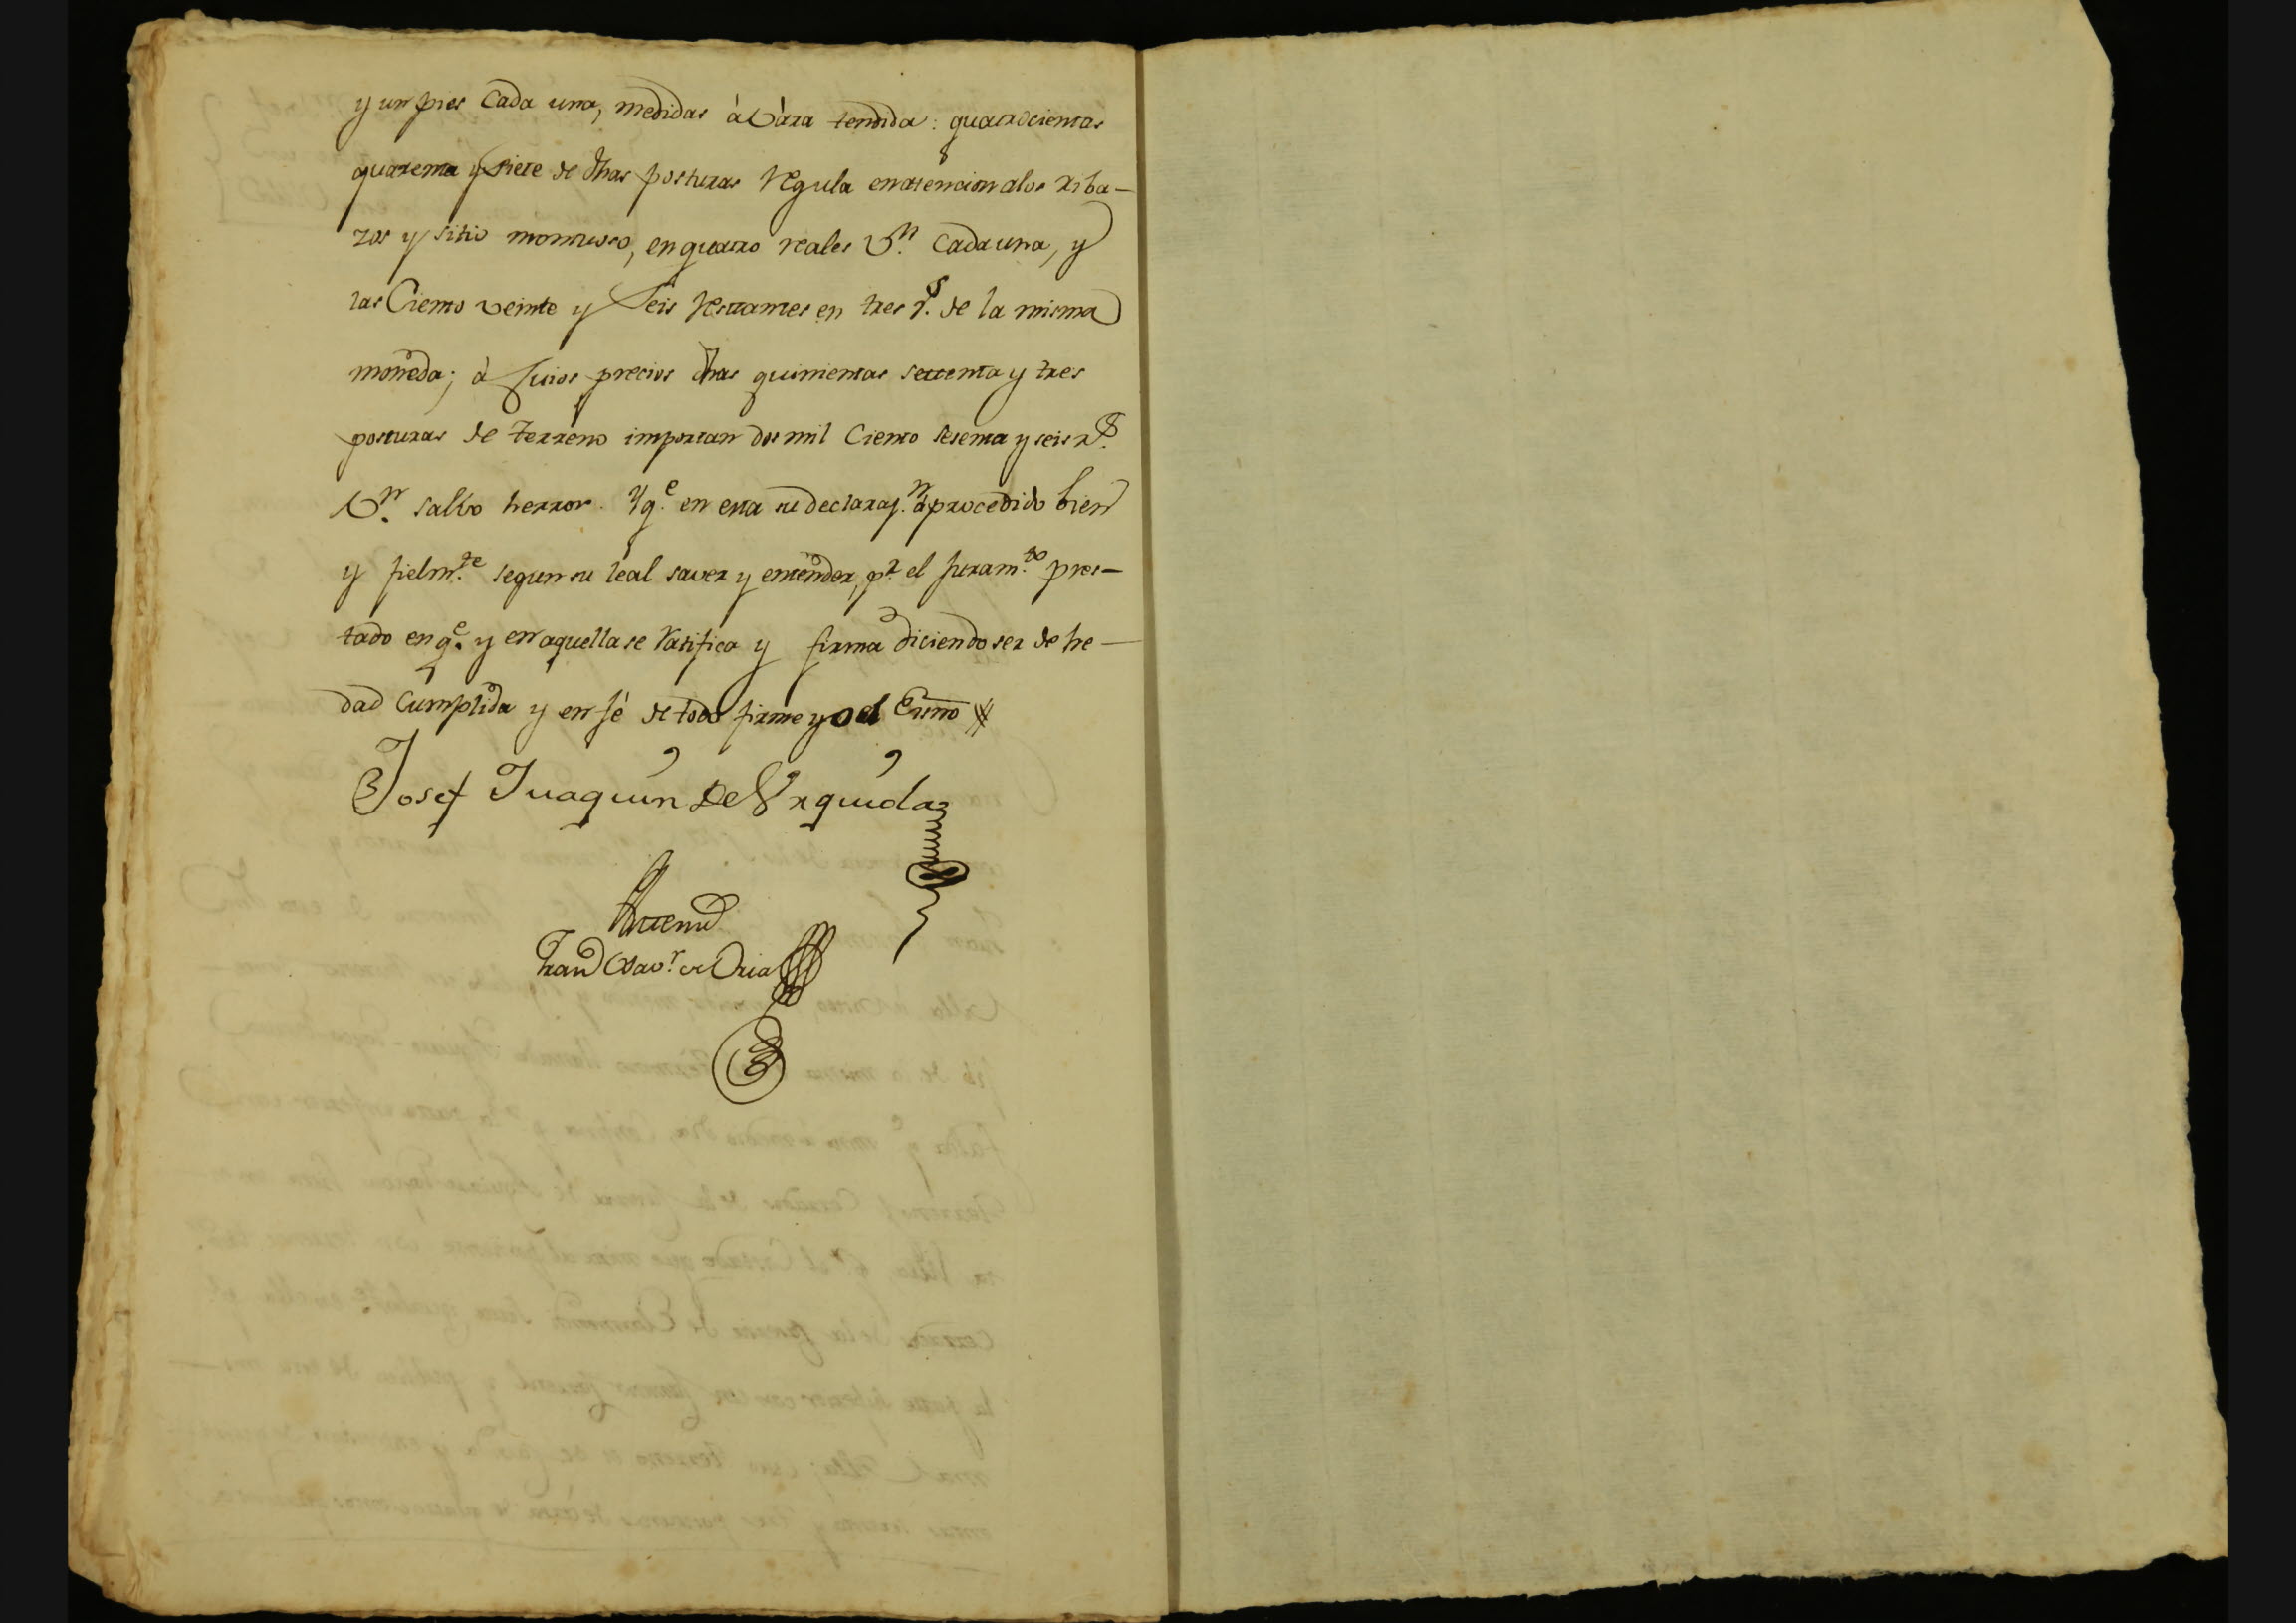 y un pies cada una, medidas à Vàra tendida: quatrocientas
quarenta y siete de dhas posturas regula en atencion alos riba-
zos y sitio montuoso, en quatro reales Vn. cada una, y
las Ciento veinte y seis restantes en tres rs. de la misma
moneda; à cuios precios dhas quinientas settenta y tres
posturas de terreno importan dos mil Ciento sesenta y seis rs.
Vn. salbo herror. Y qe. en esta su declarazn. à procedido bien
y fielmte. segun su leal saver y entender, pr. el Juramto. pres-
tado en qe. y en aquella se ratifica y firma diciendo ser de he-
dad cumplida y en fè de todo firme yo el Essno
Josef Juaquin De Vrquiola
Antemi
Fran Xavr. de Oria